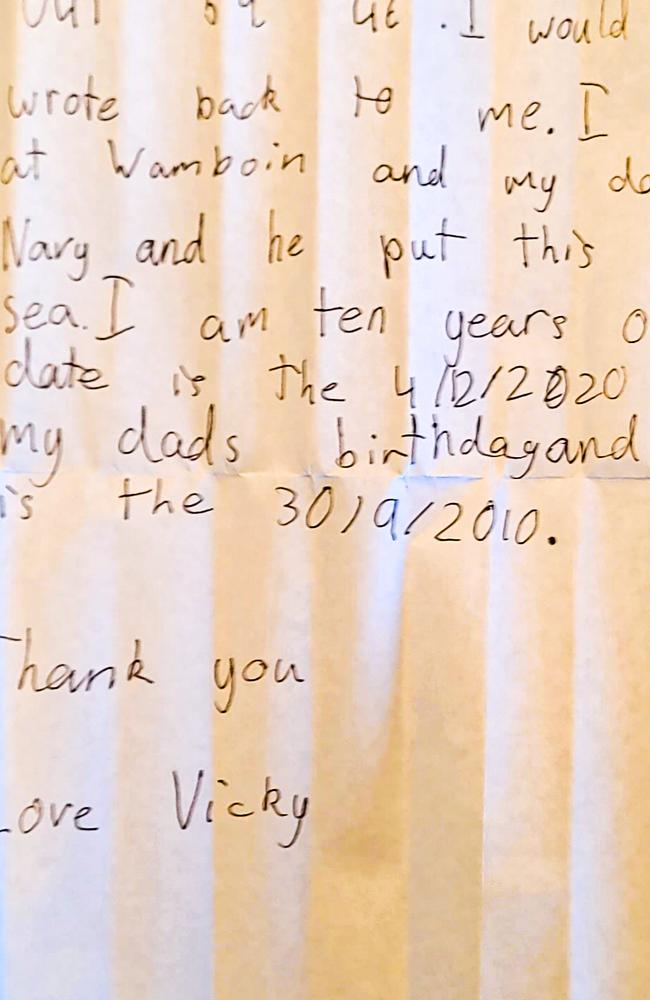 . I would
wrote back to me. I
at Wamboin and my
Navy and he put this
sea. I am ten years
date is the 4/12/2020
my dads birthdayand
is the 30/9/2010.
Thank you
Love Vicky